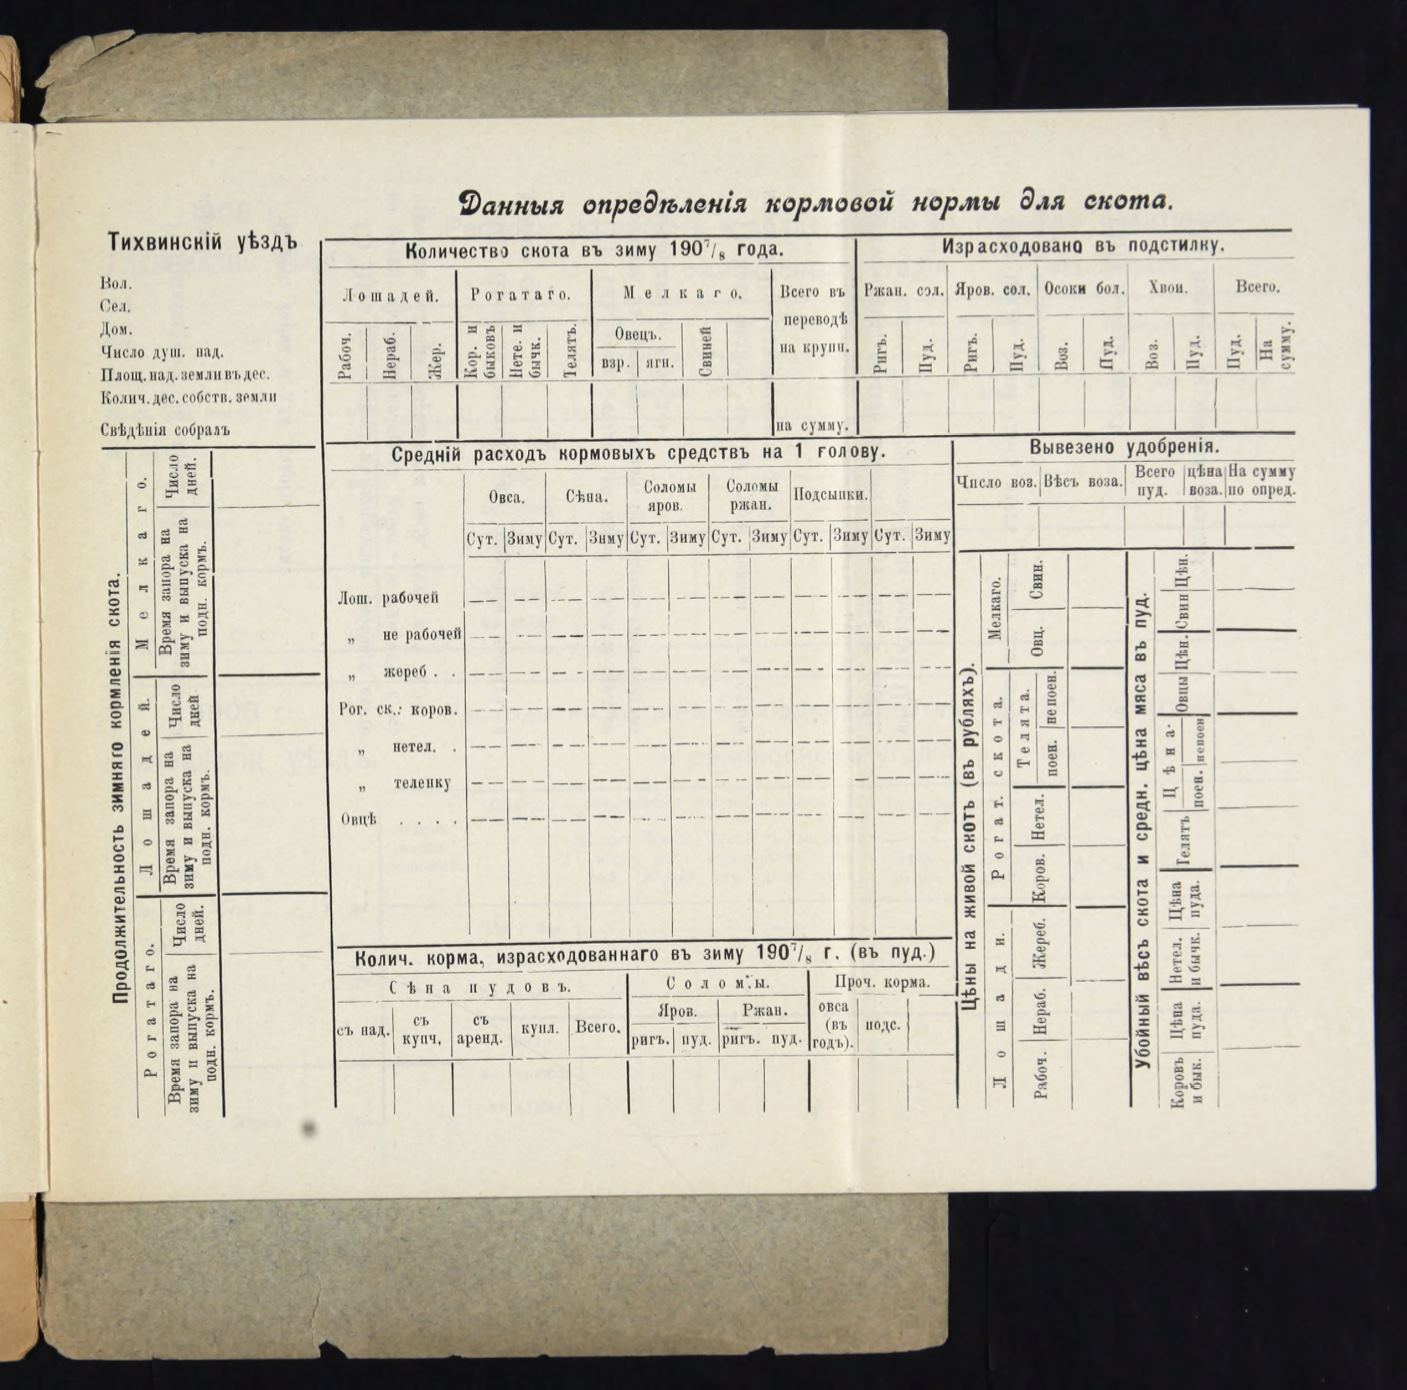 Данныя опредѣленія кормовой нормы для скота.
Тихвинскій уѣздъ
Вол.
Сел.
Дом.
Число душ. над.
Площ. над. земли въ дес.
Колич. дес. собств. земли
Свѣдѣнія собралъ
Количество скота въ зиму 190⁷/₈ года.
Лошадей.
Рогатаго.
Мелкаго.
Всего въ
переводѣ
на крупн.
Рабоч.
Нераб.
Жер.
Кор. и
быковъ
Нете. и
бычк.
Телят.
Овецъ.
взр.
ягн.
Свиней
на сумму.
Израсходовано въ подстилку.
Ржан. сол.
Яров. сол.
Осоки бол.
Хвои.
Всего.
Ригъ.
Пуд.
Ригъ.
Пуд.
Воз.
Пуд.
Воз.
Пуд.
Пуд.
На
сумму.
Продолжительность зимняго кормленія скота.
Мелкаго.
Число
дней.
Время запора на
зиму и выпуска на
подн. кормъ.
Лошадей.
Число
дней
Время запора на
зиму и выпуска на
подн. кормъ.
Рогатаго.
Число
дней.
Время запора на
зиму и выпуска на
подн. кормъ.
Средній расходъ кормовыхъ средствъ на 1 голову.
Овса.
Сѣна.
Соломы
яров.
Соломы
ржан.
Подсыпки.
Сут. Зиму Сут. Зиму Сут. Зиму Сут. Зиму Сут. Зиму Сут. Зиму
Лош. рабочей
„ не рабочей
„ жереб . .
Рог. ск.: коров.
„ нетел. .
„ теленку
Овцѣ . . . .
Колич. корма, израсходованнаго въ зиму 190⁷/₈ г. (въ пуд.)
Сѣна пудовъ.
Соломы.
Проч. корма.
съ над.
съ
купч.
съ
аренд.
купл.
Всего.
Яров.
Ржан.
ригъ.
пуд.
ригъ.
пуд.
овса
(въ
годъ).
подс.
Вывезено удобренія.
Число воз.
Вѣсъ воза.
Всего
пуд.
цѣна
воза.
На сумму
по опред.
Цѣны на живой скотъ (въ рубляхъ).
Мелкаго.
Свин.
Овц.
Рогат. скота.
Телята.
непоен.
поен.
Нетел.
Коров.
Лошади.
Жереб.
Нераб.
Рабоч.
Убойный вѣсъ скота и средн. цѣна мяса въ пуд.
Цѣн.
Свин
Цѣн.
Овцы
Цѣна
непоен
поен.
Телятъ
Цѣна
пуда.
Нетел.
и бычк.
Цѣна
пуда.
Коровъ
и бык.